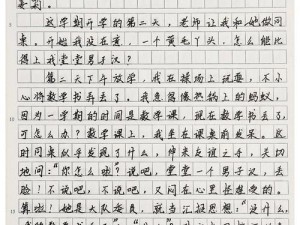 这学期开学的第二天，老师让我和她做同
桌。开始我没在意，一个黄毛丫头，怎么能比
得上我堂堂男子汉？
第二天下午放学，我在操场上玩耍，不小
心将数学书弄丢了。我急得像热锅上的蚂蚁，
因为一学期的时间是数学课，现在数学书丢了，
可怎么办？数学课上，我半在课桌前发呆。这
时同桌似乎发现了什么，伸来友谊之手，关切
地问：“你怎么啦？”说吧，堂堂一个男子汉，丢
脸！不说吧，不说吧，又闷在心里挺难受的，
算啦！她是大队委员，就当汇报思想：“没什么，